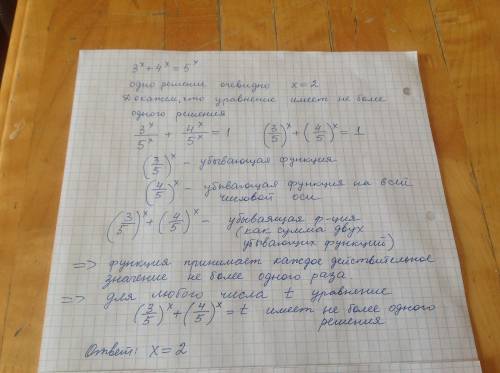 3^x + 4^x = 5^x
одно решение очевидно x = 2
Докажем, что уравнение имеет не более
одного решения
3^x/5^x + 4^x/5^x = 1 (3/5)^x + (4/5)^x = 1
(3/5)^x - убывающая функция
(4/5)^x - убывающая функция на всей
числовой оси
(3/5)^x + (4/5)^x - убываящая ф-ция
(как сумма двух
убывающих функций)
=> функция принимает каждое действительное
значение не более одного раза
=> для любого числа t уравнение
(3/5)^x + (4/5)^x = t имеет не более одного
решения
Ответ: x = 2